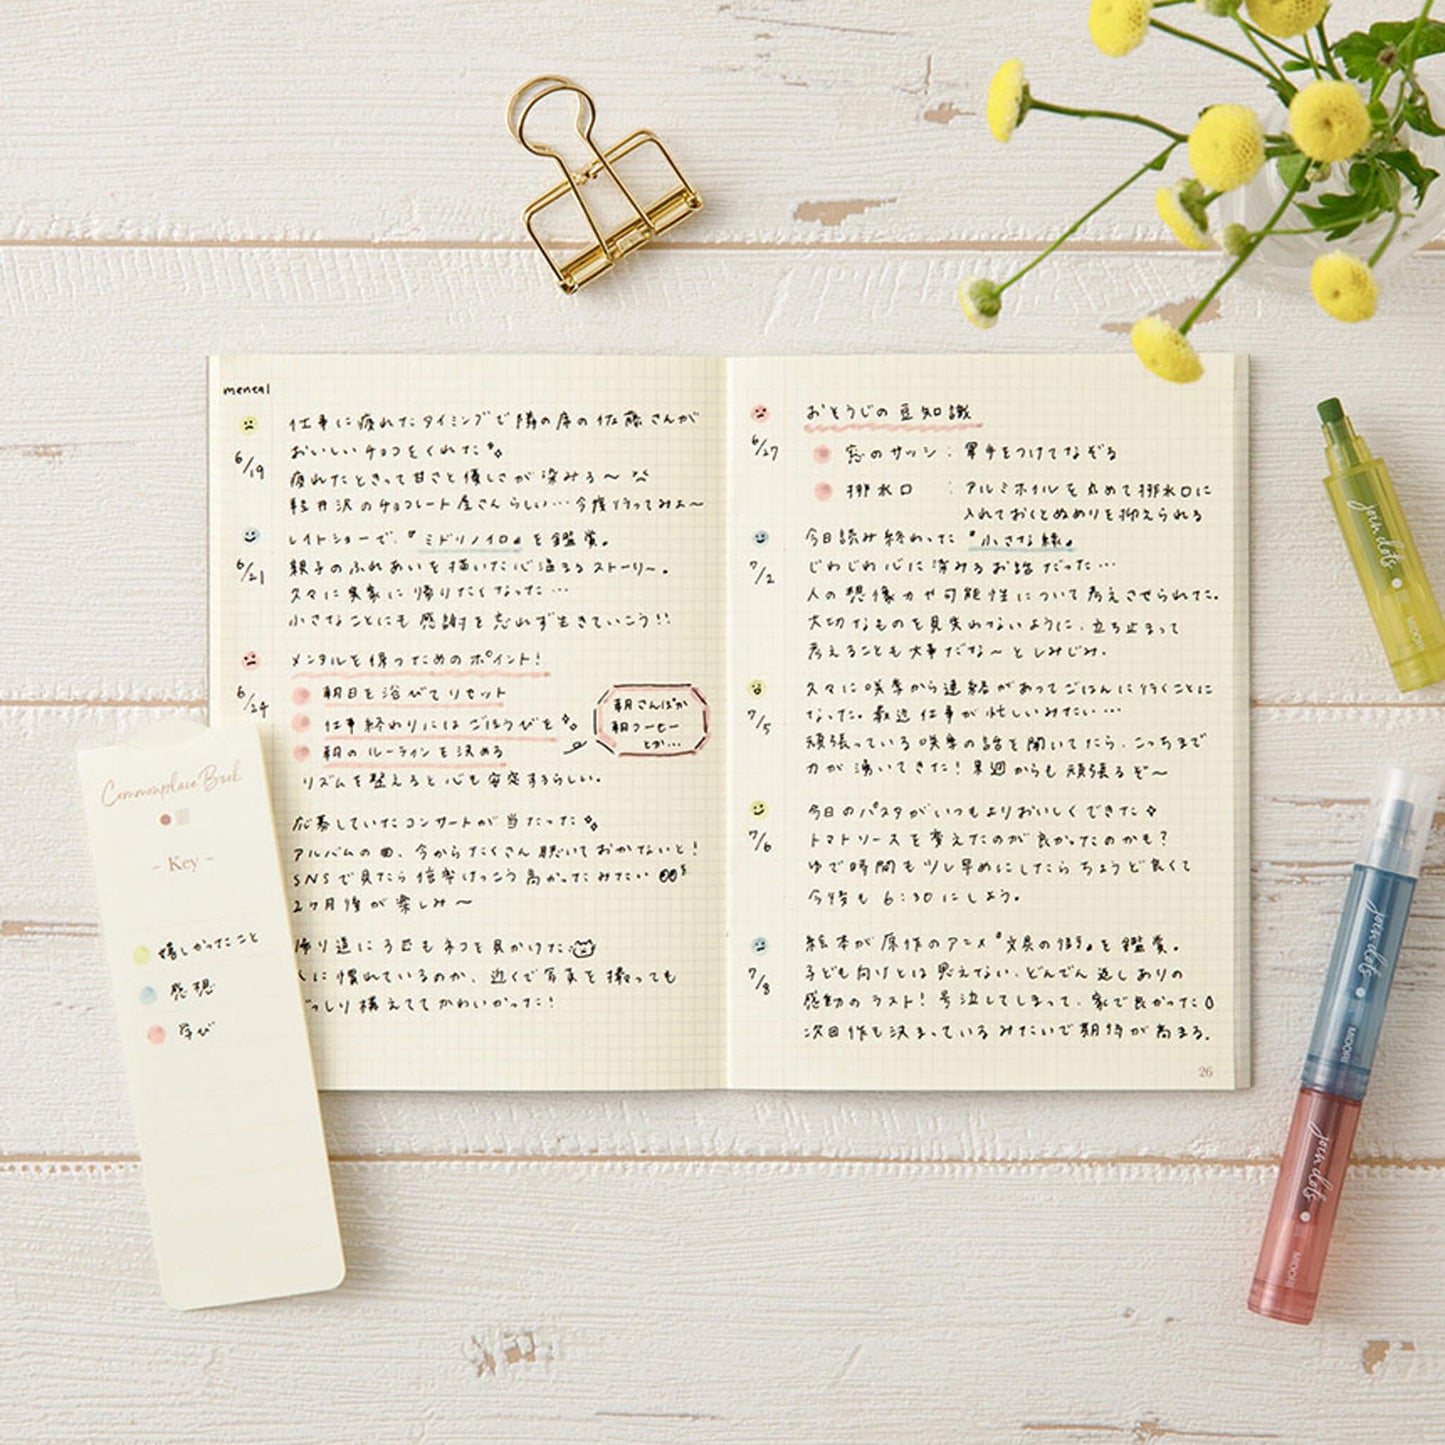 mental
6/19
仕事に疲れたタイミングで隣の席の佐藤さんが
おいしいチョコをくれた
疲れたときって甘さと優しさが染みる〜
軽井沢のチョコレート屋さんらしい…今度行ってみよ〜
6/21
レイトショーで、『ミドリノイロ』を鑑賞。
親子のふれあいを描いた心温まるストーリー。
久々に実家に帰りたくなった…
小さなことにも感謝を忘れず生きていこう!!
6/24
メンタルを保つためのポイント!
朝日を浴びてリセット
仕事終わりにはごほうびを
朝のルーティンを決める
朝さんぽか
朝コーヒー
とか…
リズムを整えると心も安定するらしい。
応募していたコンサートが当たった
アルバムの曲、今からたくさん聴いておかないと!
SNSで見たら倍率けっこう高かったみたい
2ヶ月後が楽しみ〜
帰り道に3匹もネコを見かけた
に慣れているのか、近くで写真を撮っても
っしり構えててかわいかった!
6/27
おそうじの豆知識
窓のサッシ：軍手をつけてなぞる
排水口：アルミホイルを丸めて排水口に
入れておくとぬめりを抑えられる
7/2
今日読み終わった『小さな縁』
じわじわ心に染みるお話だった…
人の想像力や可能性について考えさせられた。
大切なものを見失わないように、立ち止まって
考えることも大事だな〜としみじみ。
7/5
久々に咲季から連絡があってごはんに行くことに
なった。最近仕事が忙しいみたい…
頑張っている咲季の話を聞いてたら、こっちまで
力が湧いてきた!来週からも頑張るぞ〜
7/6
今日のパスタがいつもよりおいしくできた
トマトソースを変えたのが良かったのかも?
ゆで時間もツレ早めにしたらちょうど良くて
今後も6:30にしよう。
7/8
絵本が原作のアニメ『文具の街』を鑑賞。
子ども向けとは思えない、どんでん返しありの
感動のラスト!号泣してしまって、家で良かった
次回作も決まっているみたいで期待が高まる。
26
Commonplace Book
- Key -
嬉しかったこと
感想
学び
join dots
MIDORI
join dots
MIDORI
join dots
MIDORI